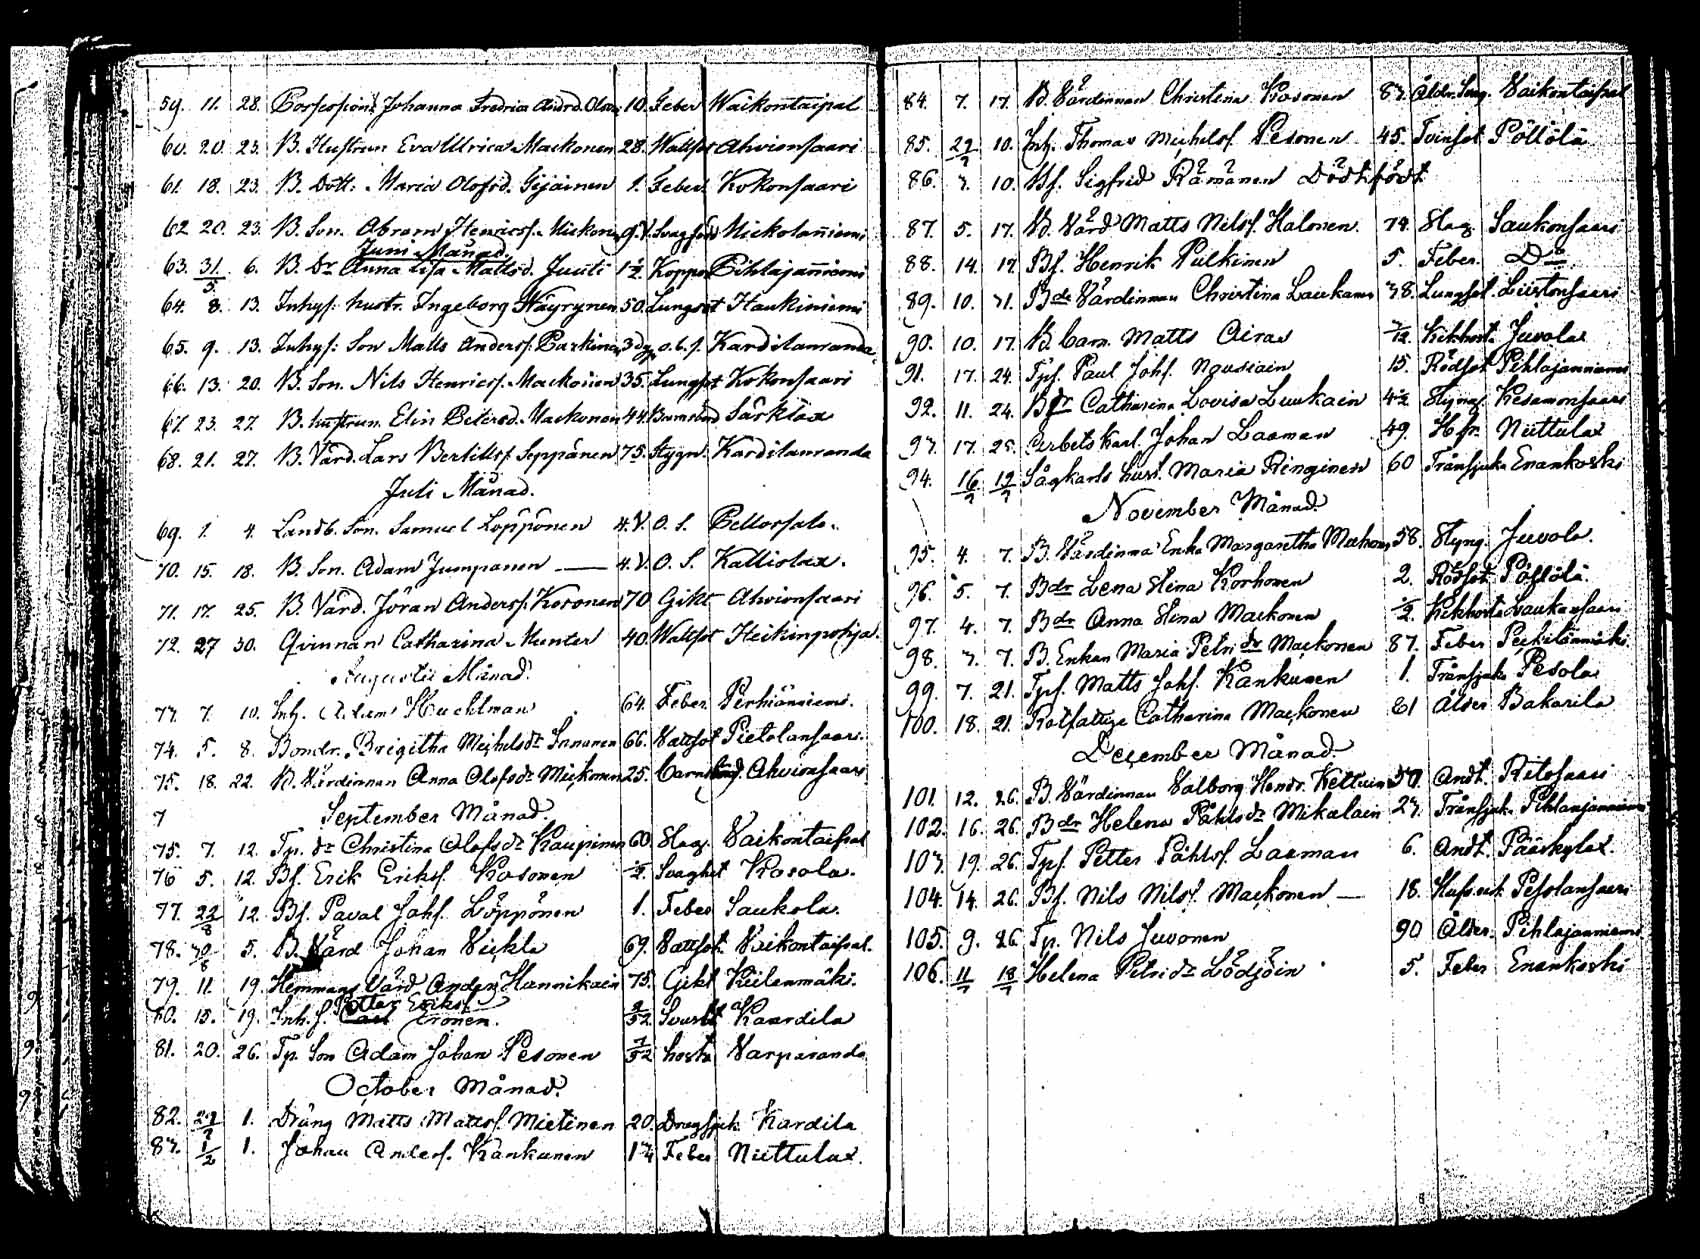 59. 11. 28. Johanna Fredrica 10. Feber Waikontaipal
60. 20. 23. B. Hustrun Eva Ulrica Mackonen 28. Wattsot Ahvionsaari
61. 18. 23. B. Dott. Maria Olofsd. 1. Feber Kokonsaari
62. 20. 23. B. Son. Abram Henricss. Mickon
Juni Månad.
63. 31/5 6. B. Dr Anna Lisa Mattsd. Juuti 1½ Koppor Pihlajanniemi
64. 8. 13. Inhys: hustr. Ingeborg Häyrynen 50. Lungsot Haukiniemi
65. 9. 13. Inhys: Son Matts Anderss. Parkinen 3 dg. o.b.s. Kardilanranda
66. 13. 20. B. Son. Nils Henricss. Mackonen 35. Lungsot Kokonsaari
67. 23. 27. B. hustrun Elin Petersd. Mackonen 44. Barnsbörd Särkilax
68. 21. 27. B. Värd. Lars Bertilss. Seppänen 75. Stygn. Kardilanranda
Juli Månad.
69. 1. 4. Landb. Son. Samuel Loppönen 4. V. O. S. Pellossalo.
70. 15. 18. B. Son. Adam Jumpanen — 4. V. O. S. Kalliolax.
71. 17. 25. B. Värd. Jöran Anderss. Kosonen 70 Gikt Ahvionsaari
72. 27 30. Qvinnan Catharina Munter 40. Wattsot Heikinpohja.
Augusti Månad.
73. 7. 10. Inh. Adam 64. Feber
74. 5. 8. Bondr. Brigitha Michelsdr Innanen 66. Vattsot Pietolansaari.
75. 18. 22. B. Värdinnan Anna Olofsdr Mickonen 25. Barnsbörd. Ahvionsaari
7 September Månad.
75. 7. 12. Tp. dr Christina Olofsdr Kaupinen 60. Slag. Vaikontaipal
76 5. 12. Bs. Erik Erikss. Kosonen ½ Svaghet Kosola.
77. 22/8 12. Bs. Paval Johs. Löppönen 1. Feber Saukola.
78. 30/8 5. B. Värd Johan Veikla 69. Vattsot. Vaikontaipal.
79. 11. 19. Hemmans Värd Anders Hannikain 75. Gikt Kiilanmäki.
Petter Eriks.
80. 15. 19. Inh. s. Cronen. 2/52 Kaardila
81. 20. 26. Tp. Son Adam Johan Pesonen 7/52 hosta Varparanda
October Månad.
82. 29/9 1. Dräng Matts Mattss. Mietinen 20. Kardila
83. 1/2 1. Johan Anders. Kankunen 1¾ Feber Niittulax.
84. 7. 17. B. Värdinnan Christina Kosonen 83. Vaikontaipal
85. 29/9 10. Inh. Thomas Michelss. Pesonen 45. Tvinsot Pöllölä
86. 3. 10. Bs. Sigfrid Rämänen Dödtfödt
87. 5. 17. B. Värd Matts Nilss. Halonen. 74. Slag Saukonsaari
88. 14. 17. Bs. Henrik Pulkinen 5. Feber. Do
89. 10. 31. Bdr Värdinnan Christina Laukanen 38. Lungsot. Liistonsaari
90. 10. 17. B. barn. Matts Airas 7/12 Kikhosta Juvola
91. 17. 24. Tps. Paul Johs. Nousiain 15. Rödsot Pihlajanniemi
92. 11. 24. Bdr Catharina Lovisa Luukain 4½ Kesamonsaari
93. 17. 25. Arbets Karl. Johan Laaman 49. Niittulax
94. 16/9 19/9 Sågkarls hust. Maria Ringinen 60 Trånsjuka Enankoski
November Månad.
95. 4. 7. B. Värdinna Enka Margaretha Mackonen 58. Styng. Juvola.
96. 5. 7. Bdr Lena Stina Korhonen 2. Rödsot. Pöllölä.
97. 4. 7. Bdr Anna Stina Mackonen ½. Kikhosta Laukansaari
98. 3. 7. B. Enkan Maria Petri dr Mackonen 87. Feber
99. 7. 21. Tps. Matts Johs. Kankunen 1. Trånsjuka Pesola
100. 18. 21. Rotfattige Catharina Mackonen 81 Ålder Bakarila
December Månad.
101. 12. 26. B. Värdinnan Valborg Hendr. Kettuin 50. Andt. Ritosaari
102. 16. 26. Bdr Helena Påhlsdr Mikalain 23. Trånsjuka Pihlajanniemi
103. 19. 26. Tps. Petter Påhlss. Laaman 6. Andt. Pääskylax.
104. 14. 26. Bs. Nils Nilss. Mackonen — 18. Pesolansaari
105. 9. 26. Tp. Nils Juvonen 90 Ålder. Pihlajanniemi
106. 11/9 18/9 Helena Petridr Lödjöin 5. Feber Enankoski